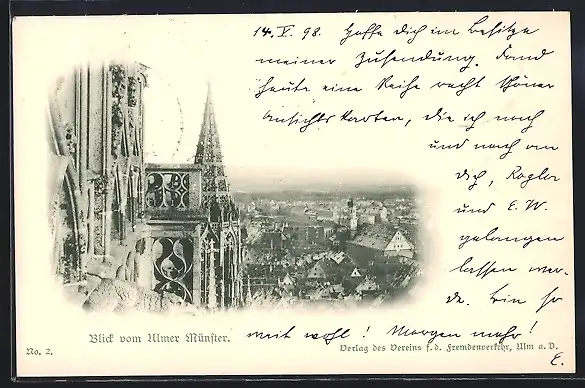 14. V. 98. Hoffe dich im Besitze
meiner Zusendung. Fand
heute eine Reihe recht schöner
Ansichtskarten, die ich nach
und nach an
dich, Kogler
und E. W.
gelangen
lassen wer-
de. Bin so
weit wohl! Morgen mehr!
E.
Blick vom Ulmer Münster.
No. 2.
Verlag des Vereins f. d. Fremdenverkehr, Ulm a. D.